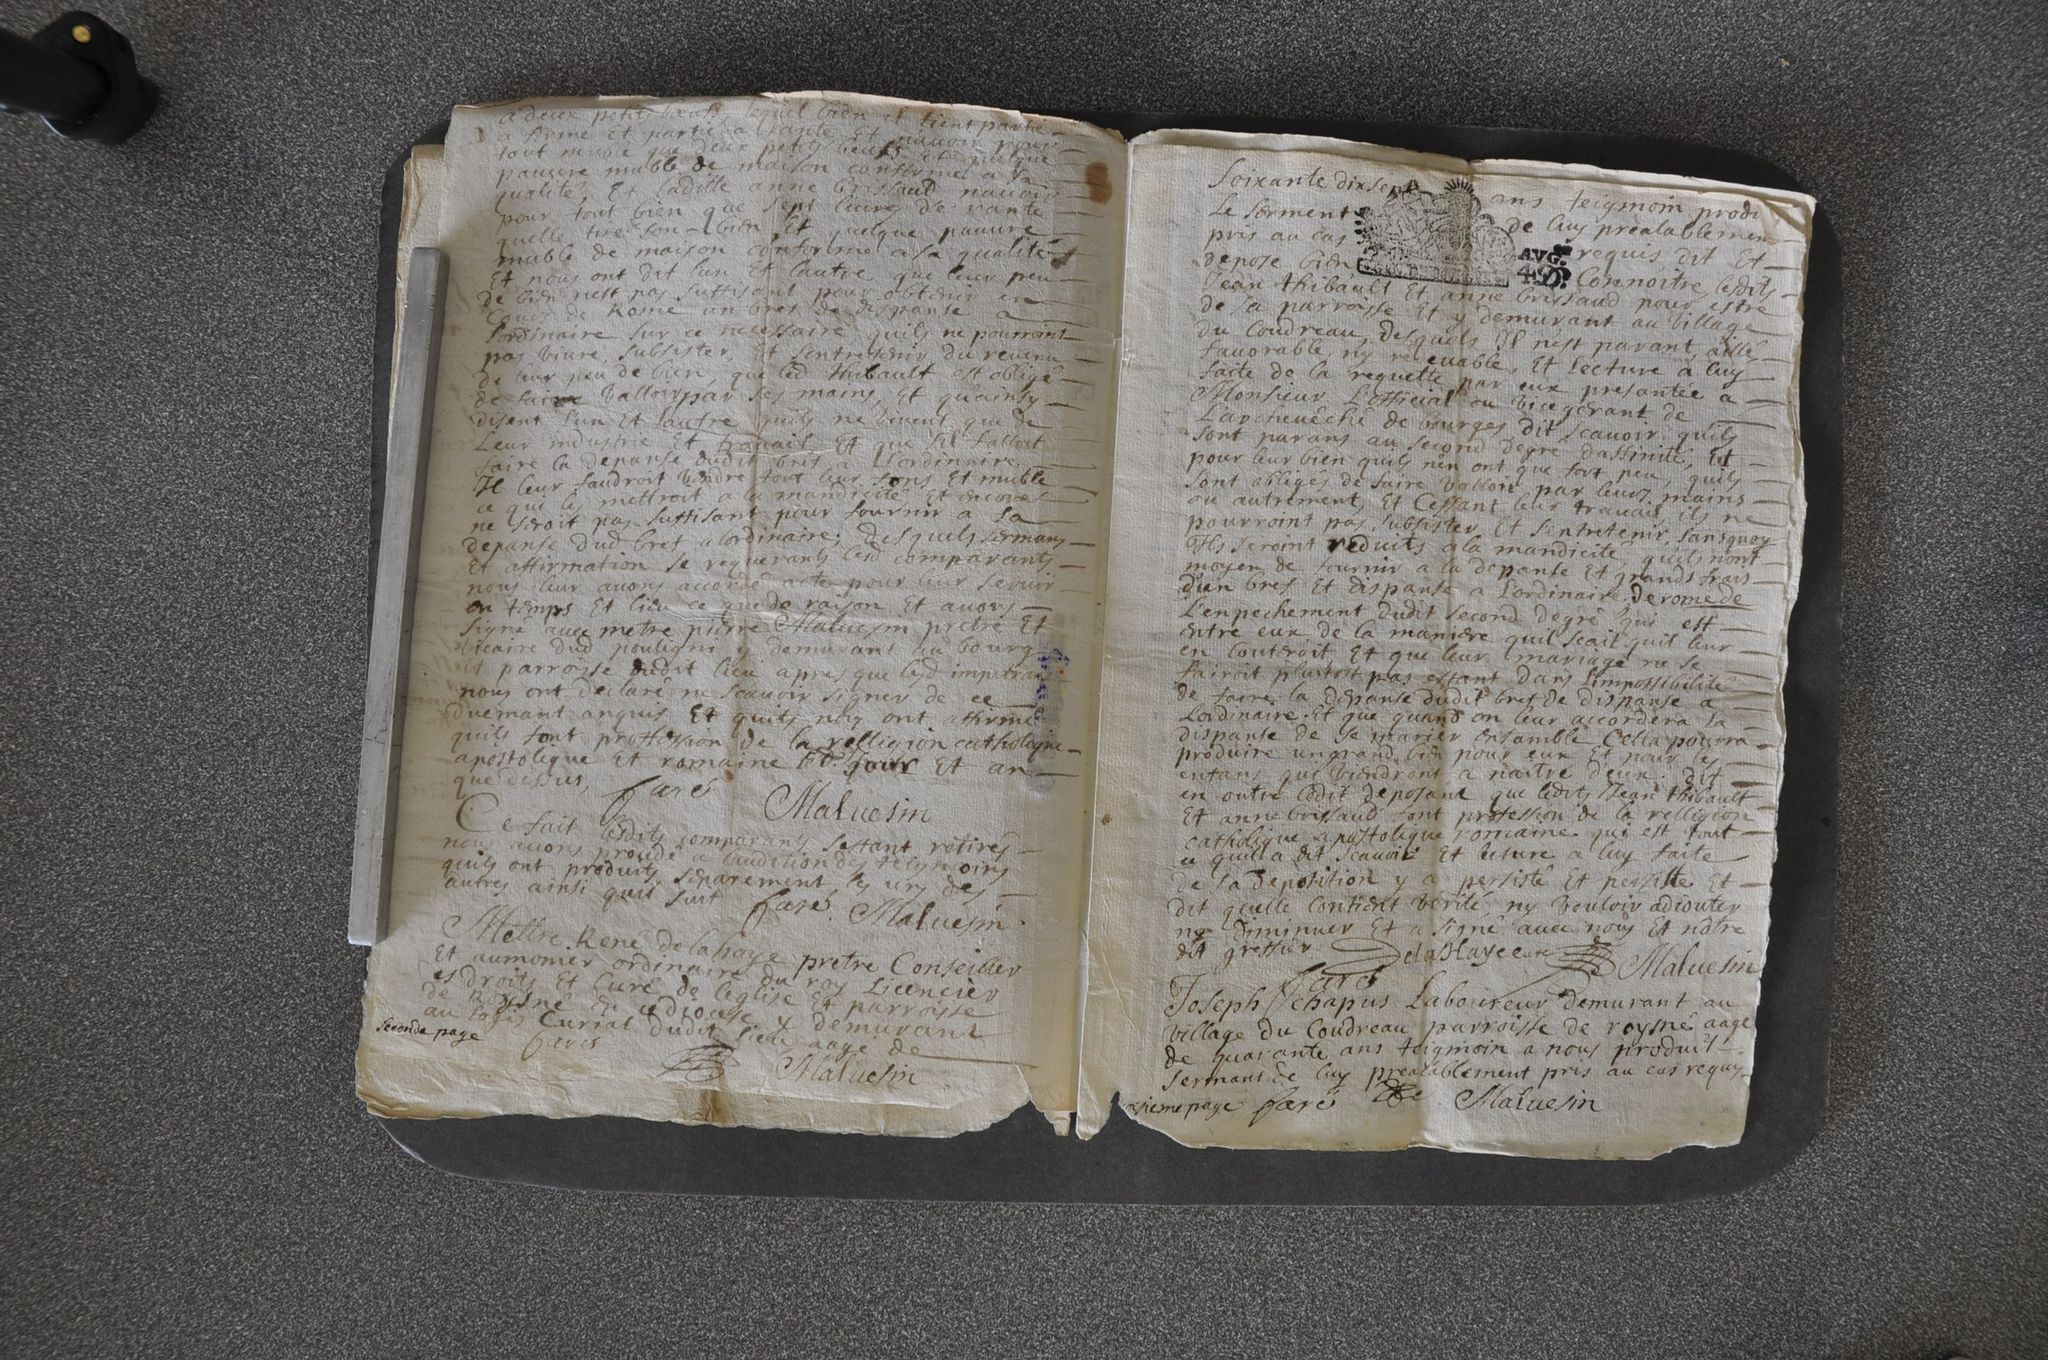 a deux petits boeufs lequel bien il tient partie
a ferme et partie a rante et n'avoir pour
tout meuble que deux petits boeufs et quelque
pauvre muble de maison conforme a sa
qualité Et laditte anne brissaud n'avoir
pour tout bien que sept livres de rante
quelle tire son bien Et quelque pauvre
muble de maison conforme a sa qualité
Et nous ont dit lun Et lautre que leur peu
de bien nest pas suffisant pour obtenir en
Cour de Rome un bref de dispanse a
lordinaire sur ce necessaire quils ne pourroint
pas vivre, subsister, Et sentretenir du revenu
de leur peu de bien, que led thibault est obligé
de faire valloir par ses mains, Et quainsy
disent lun Et lautre quils ne vivent que de
Leur industrie Et travail Et que sil falloit
faire la depanse dudit bref a Lordinaire
Il leur faudroit vendre tout leur fons Et muble
ce qui les mettroit a la mandicité Et encores
ne seroit pas suffisant pour fournir a la
depanse dud bref a lordinaire; desquels sermans
Et affirmation se requerants lesd comparants
nous leur avons accordé acte pour leur servir
en temps Et lieu ce que de raison Et avons
signé avec metre pierre Maluesin pretre Et
vicaire dud pouligni y demurant au bourg
et parroisse dudit lieu apres que lesd impetrans
nous ont declaré ne scavoir signer de ce
duemant anquis Et quils nous ont affirmé
quils font proffession de la relligion catholique
apostolique et romaine led. jour Et an
que dessus, faré Maluesin
Ce fait lesdits comparans sestant retirés
nous avons procedé a laudition des teigmoins
quils ont produits separement les uns des
autres ainsi quil suit faré Maluesin
Mettre René de la haye pretre Conseiller
Et aumonier ordinaire du roy Licencier
es droits Et Curé de leglise Et parroisse
de Roysné de ce diocese y demurant
au logis Curial dudit lieu aagé de
Seconde page faré Maluesin
Soixante dix sept ans teigmoin produi
Le serment de luy prealablement
pris au cas requis dit Et
depose bien Connoitre lesdits
AVG.
Jean thibault Et anne brissaud pour estre
de sa parroisse Et y demurant au village
du Coudreau, desquels Il nest parant, allié
favorable ny revevable, Et Lecture a luy
faite de la requette par eux presantée a
Monsieur L'official ou vicegerant de
Larchevéché de bourges dit scavoir quils
sont parans au second degre daffinité, Et
pour leur bien quils nen ont que fort peu, quils
sont obligés de faire valloir par leurs mains
ou autrement, Et Cessant leur travail ils ne
pourroint pas subsister Et sentretenir, sans quoy
Ils seroint reduits a la mandicité, quils nont
moyen de fournir a la depanse Et grands frais
dun bref Et dispanse a Lordinaire de rome de
L'enpechement dudit second degré qui est
entre eux de la maniere quil scait quil leur
en Couteroit Et que leur mariage ne se
fairoit plustost pas estant dans limpossibilité
de faire la depanse dudit bref de dispanse a
Lordinaire. Et que quand on leur accordera la
dispanse de se marier ensamble Cella pourra
produire un grand bien pour eux Et pour les
enfans qui viendront a naitre deux. dit
en outre ledit deposant que ledits Jean thibault
Et anne brissaud font profession de la relligion
catholique apostolique romaine qui est tout
ce quil a dit scavoir Et lecture a luy faite
de sa deposition y a persisté Et persiste Et
dit quelle contient verité, ny vouloir adjouter
ny diminuer Et a signé avec nous Et notre
dit greffier delaHaye curé Maluesin
faré
Joseph chapus Laboureur demurant au
village du Coudreau parroisse de roysné aagé
de quarante ans teigmoin a nous produit
sermant de luy prealablement pris au cas requis
page faré Maluesin